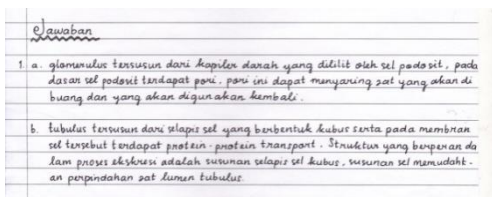 Jawaban
1. a. glomerulus tersusun dari kapiler darah yang dililit oleh sel podosit, pada
dasar sel podosit terdapat pori. pori ini dapat menyaring zat yang akan di
buang dan yang akan digunakan kembali.
b. tubulus tersusun dari selapis sel yang berbentuk kubus serta pada membran
sel tersebut terdapat protein-protein transport. Struktur yang berperan da
lam proses ekskresi adalah susunan selapis sel kubus, susunan sel memudahk-
an perpindahan zat lumen tubulus.